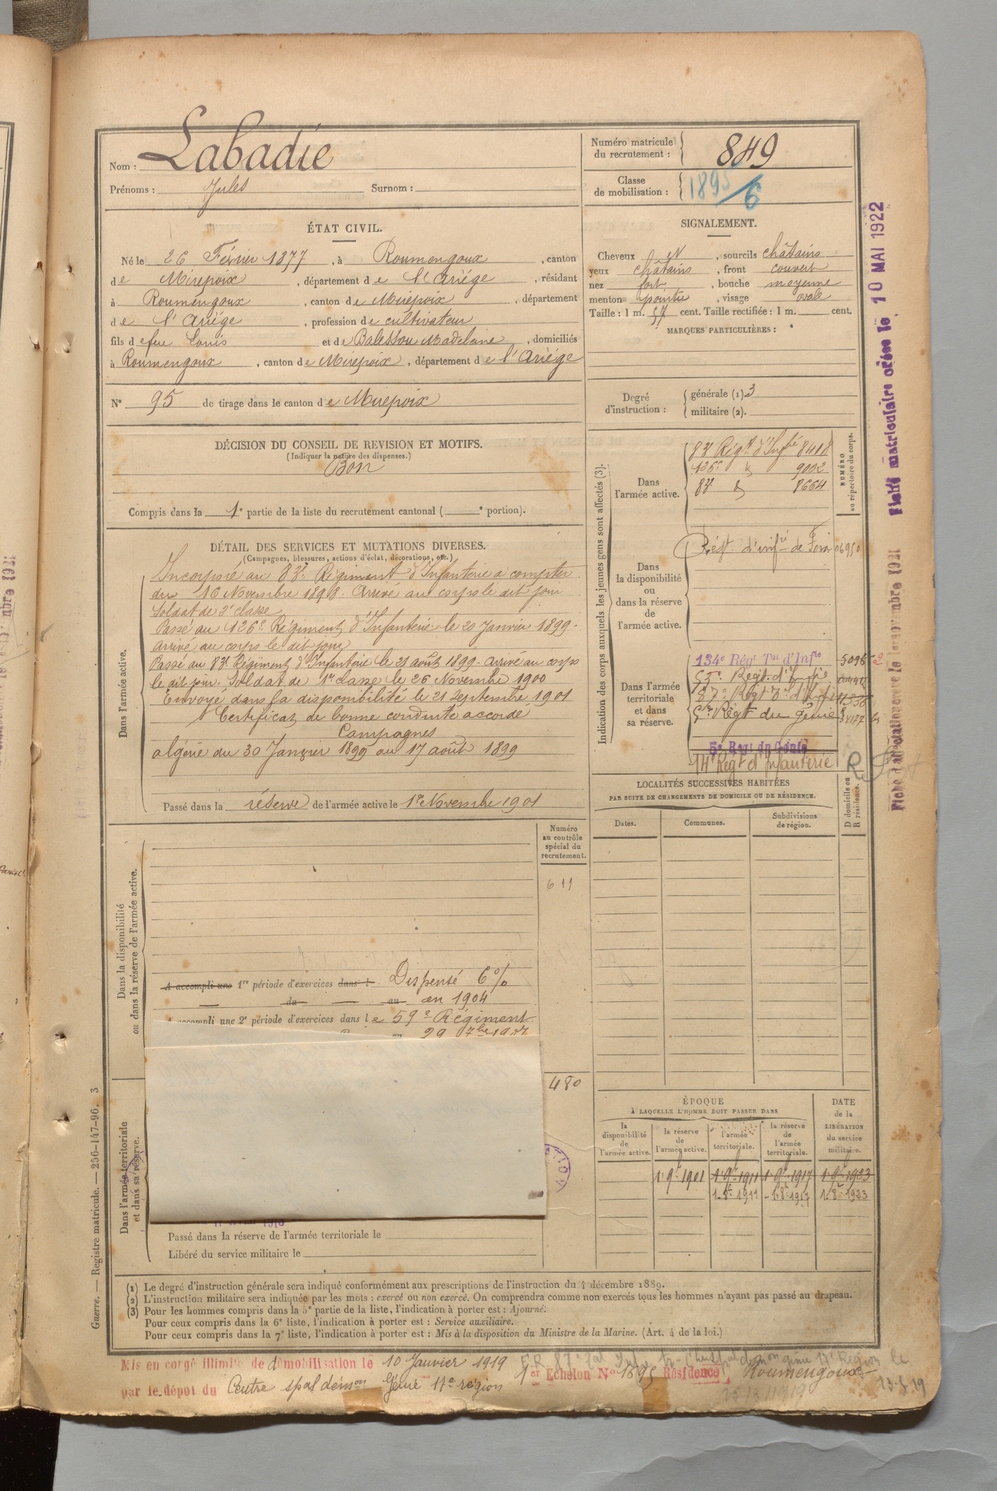 Nom : Labadie
Prénoms : Jules Surnom :
Numéro matricule du recrutement : 849
Classe de mobilisation : 1895/6
ÉTAT CIVIL.
Né le 26 Février 1877, à Roumengoux, canton
de Mirepoix, département de l'Ariége, résidant
à Roumengoux, canton de Mirepoix, département
de l'Ariége, profession de cultivateur
fils de feu Louis et de Madelaine, domiciliés
à Roumengoux, canton de Mirepoix, département de l'Ariége
N° 95 de tirage dans le canton de Mirepoix
SIGNALEMENT.
Cheveux et, sourcils châtains
yeux châtains, front couvert
nez fort, bouche moyenne
menton pointu, visage ovale
Taille : 1 m. 57 cent. Taille rectifiée : 1 m. cent.
MARQUES PARTICULIÈRES :
Degré d'instruction : générale (1) 3
militaire (2).
DÉCISION DU CONSEIL DE REVISION ET MOTIFS.
(Indiquer la nature des dispenses.)
Bon
Compris dans la 1e partie de la liste du recrutement cantonal ( e portion).
DÉTAIL DES SERVICES ET MUTATIONS DIVERSES.
(Campagnes, blessures, actions d'éclat, décorations, etc.)
Dans l'armée active.
Incorporé au 83e Régiment d'Infanterie à compter
du 16 Novembre 1898. Arrivé au corps le dit jour
Soldat de 2e classe
Passé au 126e Régiment d'Infanterie le 20 Janvier 1899.
Arrivé au corps le dit jour
Passé au 83e Régiment d'Infanterie le 21 août 1899. Arrivé au corps
le dit jour. Soldat de 1re classe le 26 Novembre 1900
Envoyé dans la disponibilité le 21 Septembre 1901
Certificat de bonne conduite accordé
Campagnes
Algérie du 30 Janvier 1899 au 17 août 1899
Passé dans la réserve de l'armée active le 1er Novembre 1901
Indication des corps auxquels les jeunes gens sont affectés (3).
NUMÉRO au répertoire du corps.
Dans l'armée active.
83e Régt d'Infie 8418
126e " 9002
83e " 8664
Dans la disponibilité ou dans la réserve de l'armée active.
Régt d'infie de Foix 06950
Dans l'armée territoriale et dans sa réserve.
134e Régt Tal d'Infie 5096
Régt d'Infie
Régt du génie
5e Regt du Génie
14e Régt d'Infanterie
LOCALITÉS SUCCESSIVES HABITÉES
PAR SUITE DE CHANGEMENTS DE DOMICILE OU DE RÉSIDENCE.
Dates. Communes. Subdivisions de région.
D domicile ou R résidence.
Numéro au contrôle spécial du recrutement.
611
Dans la disponibilité ou dans la réserve de l'armée active.
A accompli une 1re période d'exercices dans l Dispensé 6%
du au en 1904
accompli une 2e période d'exercices dans le 59e Régiment
29 7bre 1907
480
Dans l'armée territoriale et dans sa réserve.
Passé dans la réserve de l'armée territoriale le
Libéré du service militaire le
ÉPOQUE
À LAQUELLE L'HOMME DOIT PASSER DANS
DATE de la LIBÉRATION du service militaire.
la disponibilité de l'armée active.
la réserve de l'armée active.
l'armée territoriale.
la réserve de l'armée territoriale.
1 9bre 1901 1 9bre 1911 1 9bre 1917 1 9bre 1923
1 8bre 1911 1 8bre 1917 1 8bre 1923
(1) Le degré d'instruction générale sera indiqué conformément aux prescriptions de l'instruction du 4 décembre 1889.
(2) L'instruction militaire sera indiquée par les mots : exercé ou non exercé. On comprendra comme non exercés tous les hommes n'ayant pas passé au drapeau.
(3) Pour les hommes compris dans la 5e partie de la liste, l'indication à porter est : Ajourné.
Pour ceux compris dans la 6e liste, l'indication à porter est : Service auxiliaire.
Pour ceux compris dans la 7e liste, l'indication à porter est : Mis à la disposition du Ministre de la Marine. (Art. 4 de la loi.)
Mis en congé illimité de démobilisation le 10 Janvier 1919
1er Echelon No 1895 Résidence Roumengoux
par le dépôt du Centre spal démon Génie 17e région
Guerre. — Registre matricule. — 256-147-96. 3
Fiche matriculaire créée le 10 MAI 1922